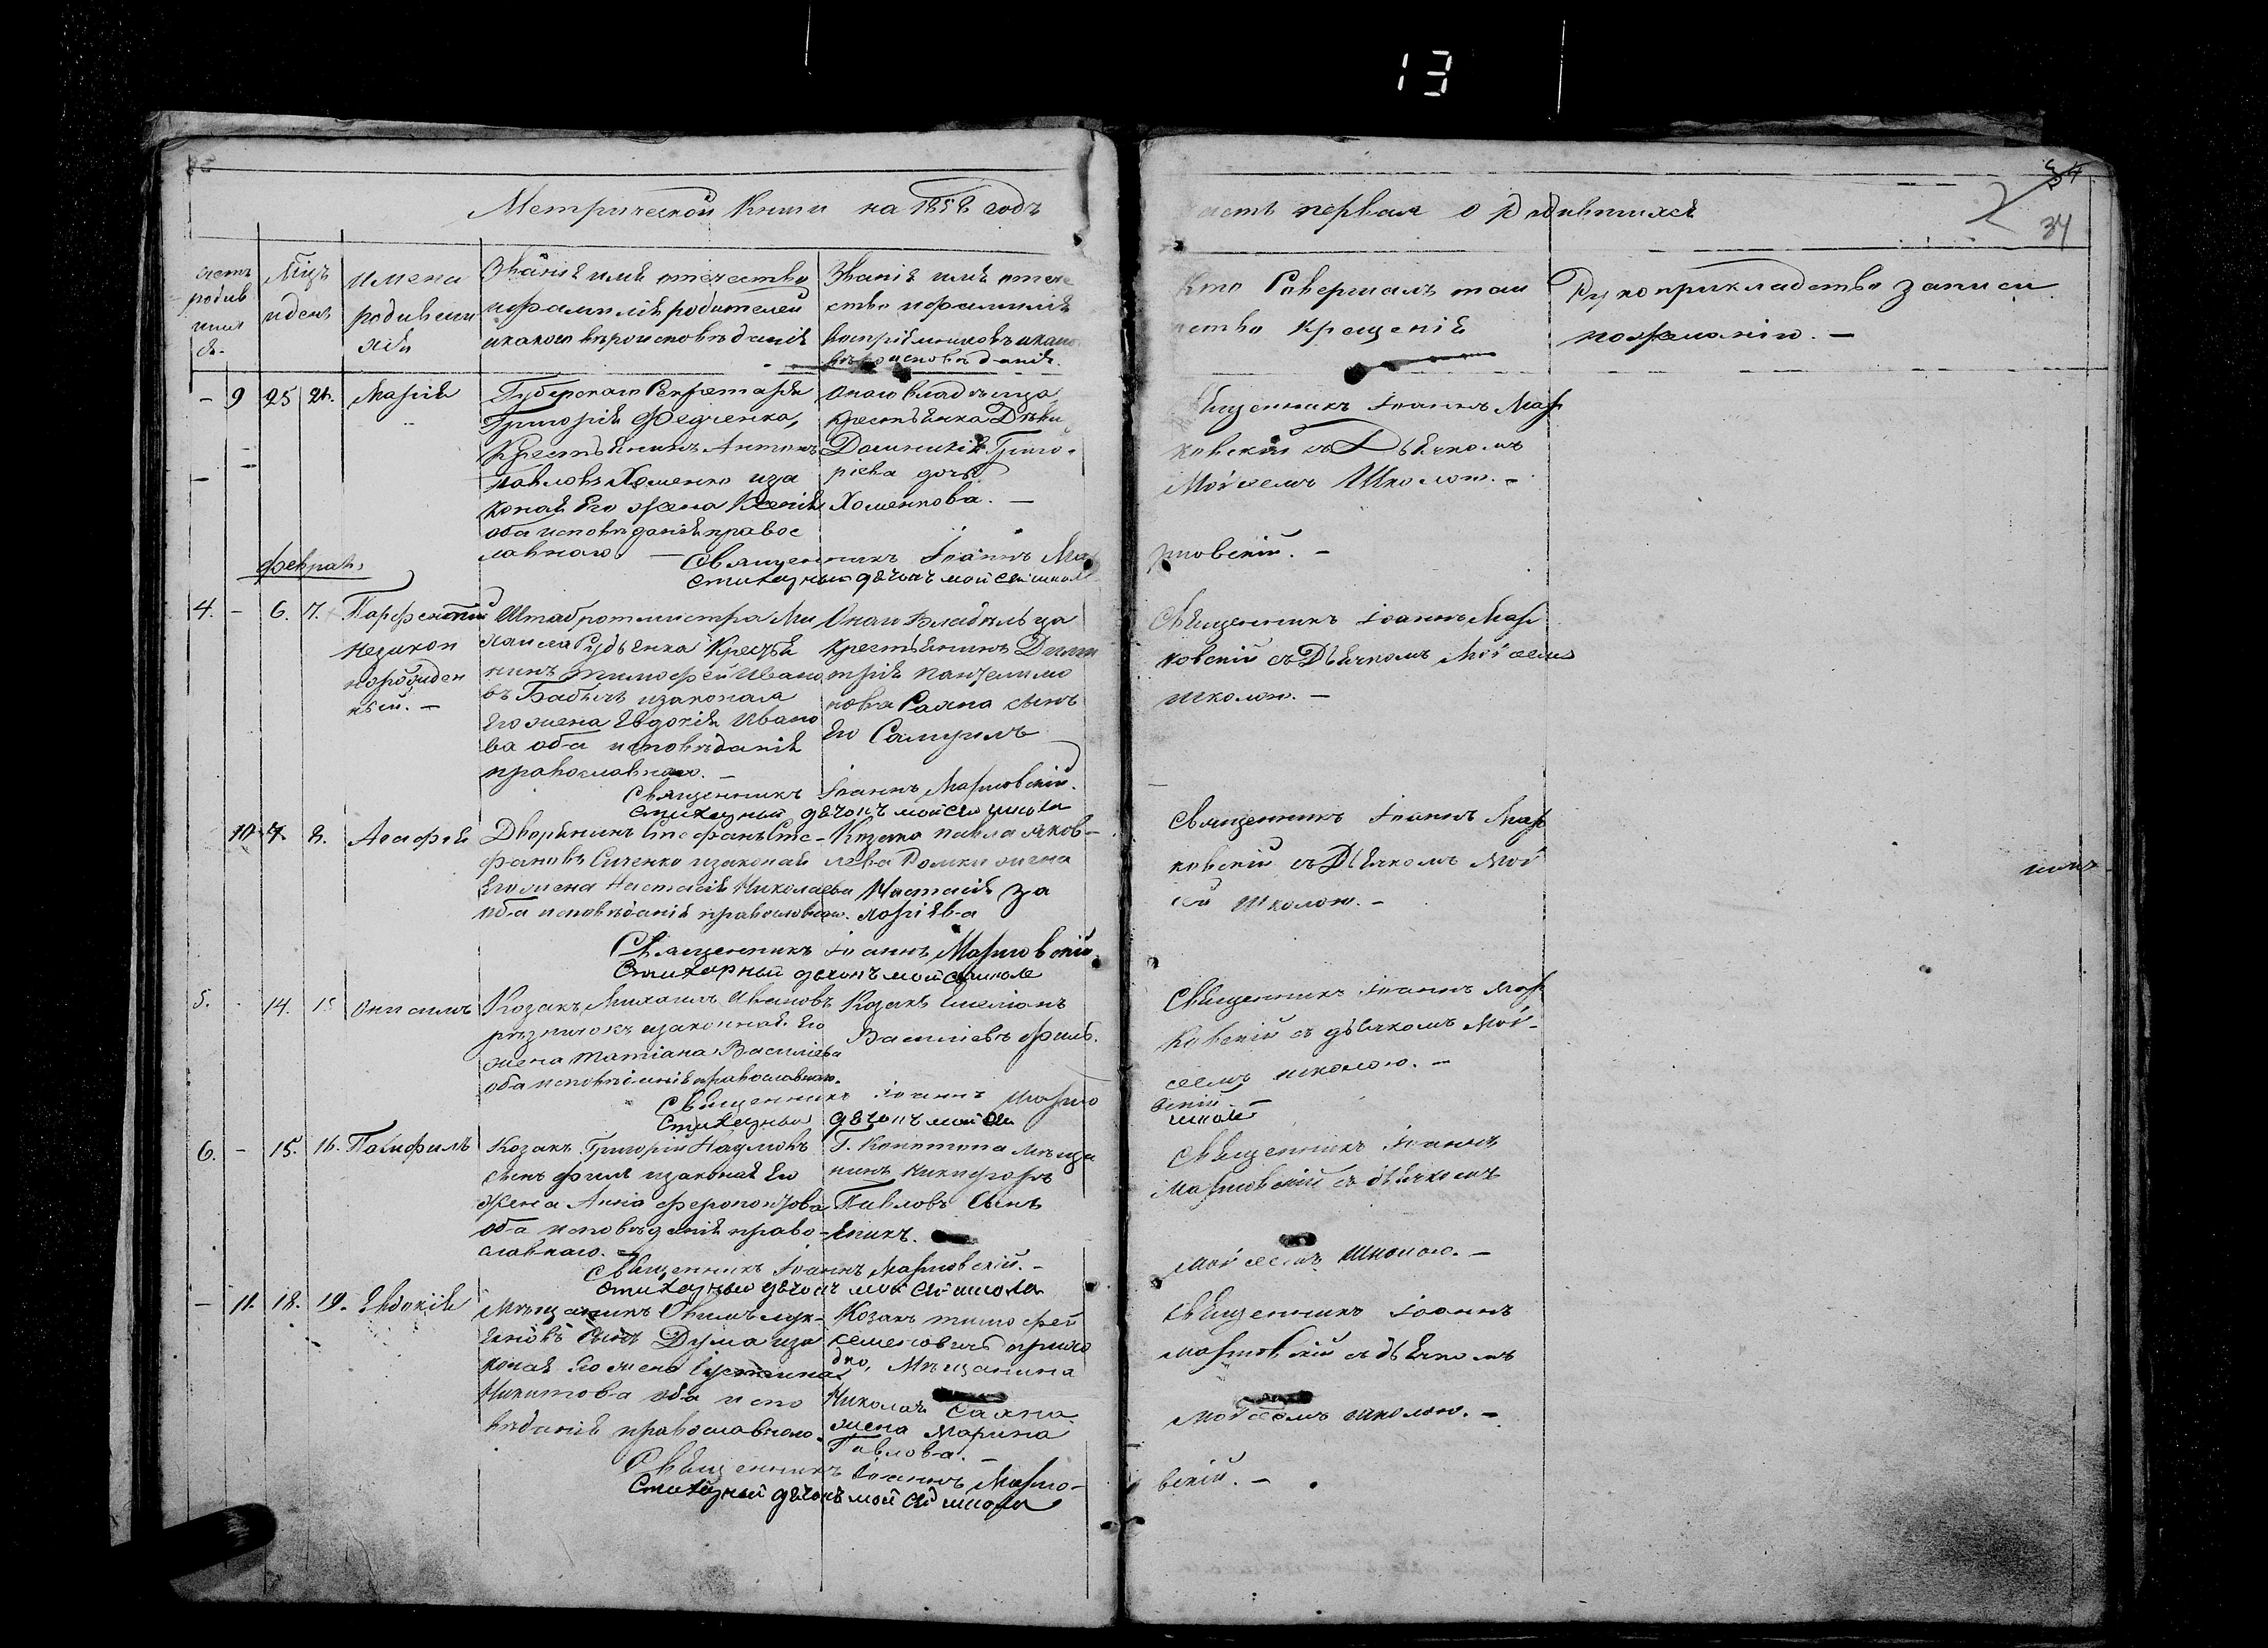 13
Метрической Книги на 1858 годъ
часть первая о родившихся
34
счетъ родив шихся
Мцъ и день
имена родившихся
Званіе имя отечество
и фамилія родителей
и какого вѣроисповѣданія
Званіе имя отече
ство и фамилія
воспріемниковъ и какого
вѣроисповѣданія.
Кто Совершалъ таи
нство Крещенія
Рукоприкладство записи
по желанію. —
— 9 25 26. Марія
Губерскаго Секретаря
Григорія Федченка,
Крестьянинъ Антонъ
Павловъ Хоменко и за
коная Его жена Ксенія
оба исповѣданія правос
лавнаго. —
Онаго владѣльца
крестьянка Дѣви
Домникія Григо-
ріева дочь
Хоменкова. —
Священникъ Іоаннъ Мар
ковскій съ Дьячкомъ
Моисеемъ Школою. —
Священникъ Іоаннъ Ма
рковскій. —
Стихарный дячокъ Мойсей Школа
Феврал.
4. — 6. 7. Парфентій
незакон
норожден
ный. —
Штабротмистра Ми
хаила Рудьенка Крестья
нинъ Тимофей Ивано
въ Бабичъ и законая
Его жена Евдокія Ивано
ва оба исповѣданія
православнаго. —
Онаго Владѣльца
крестьянинъ Дими
трія Пантелимо
нова Саяна сынъ
Его Самуилъ
Священникъ Іоаннъ Мар
ковскій съ Дьячкомъ Моисеемъ
Школою. —
Священникъ Іоаннъ Марковскій.
Стихарный дячокъ Мойсей Школа
10. 7. 8. Агафія
Дворянинъ Стефанъ Сте-
фановъ Сиченко и законая
Его жена Настасія Николаева
оба исповѣданія православнаго.
Козака Павла Яков-
лева Ромки жена
Настасія За
харіева
Священникъ Іоаннъ Мар
ковскій съ Дьячкомъ Мой
сей Школою. —
Священникъ Іоаннъ Марковскій.
Стихарный дячокъ Мойсей Школа
5. - 14. 15 Онисимъ
Козакъ Михаилъ Ивановъ
и законная Его
жена Татіана Василіева
оба исповѣданія православнаго.
Козакъ Емеліанъ
Василіевъ Филь.
Священникъ Іоаннъ Мар
ковскій съ дьячкомъ Мой-
сеемъ Школою. —
Священникъ Іоаннъ Марко
вскій. —
Стихарный дячокъ Мойсей
Школа
6. — 15. 16. Памфилъ
Козакъ Григорій Наумовъ
сынъ Филь и законая Его
жена Анна Ферапонтова
оба исповѣданія право-
славнаго. —
Г. Конотопа мѣща
нинъ Никифоръ
Павловъ Сынъ
Священникъ Іоаннъ
Марковскій съ дьячкомъ
Мойсеемъ Школою. —
Священникъ Іоаннъ Марковскій. —
Стихарный дячокъ Мойсей Школа
— 11. 18. 19. Евдокія
Мѣщанинъ
сынъ Дума и за
коная Его жена Іустина
Никитова оба испо
вѣданія православнаго.
Козакъ Тимофей
Семеновичъ
Мѣщанина
Николая Саяна
жена Марина
Павлова. —
Священникъ Іоаннъ
Марковскій съ дьячкомъ
Мойсеемъ Школою. —
Священникъ Іоаннъ Марко-
вскій. —
Стихарный дячокъ Мойсей Школа